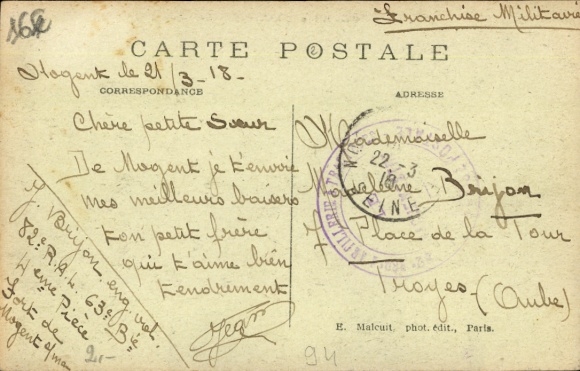 162
Franchise Militaire
CARTE POSTALE
Nogent le 21/3-18-
CORRESPONDANCE
ADRESSE
Chère petite Sœur
De Nogent je t'envoie
mes meilleurs baisers
ton petit frère
qui t'aime bien
tendrement
Jean
J. Brijon eng. vol.
82e R.A.L. 63e Bie
4eme Pièce
Fort de
Nogent s/me
2.-
Mademoiselle
Madeleine Brijon
7 Place de la Tour
Troyes-(Aube)
22-3
18
SEINE
ARTILLERIE
E. Malcuit, phot. édit., Paris.
94